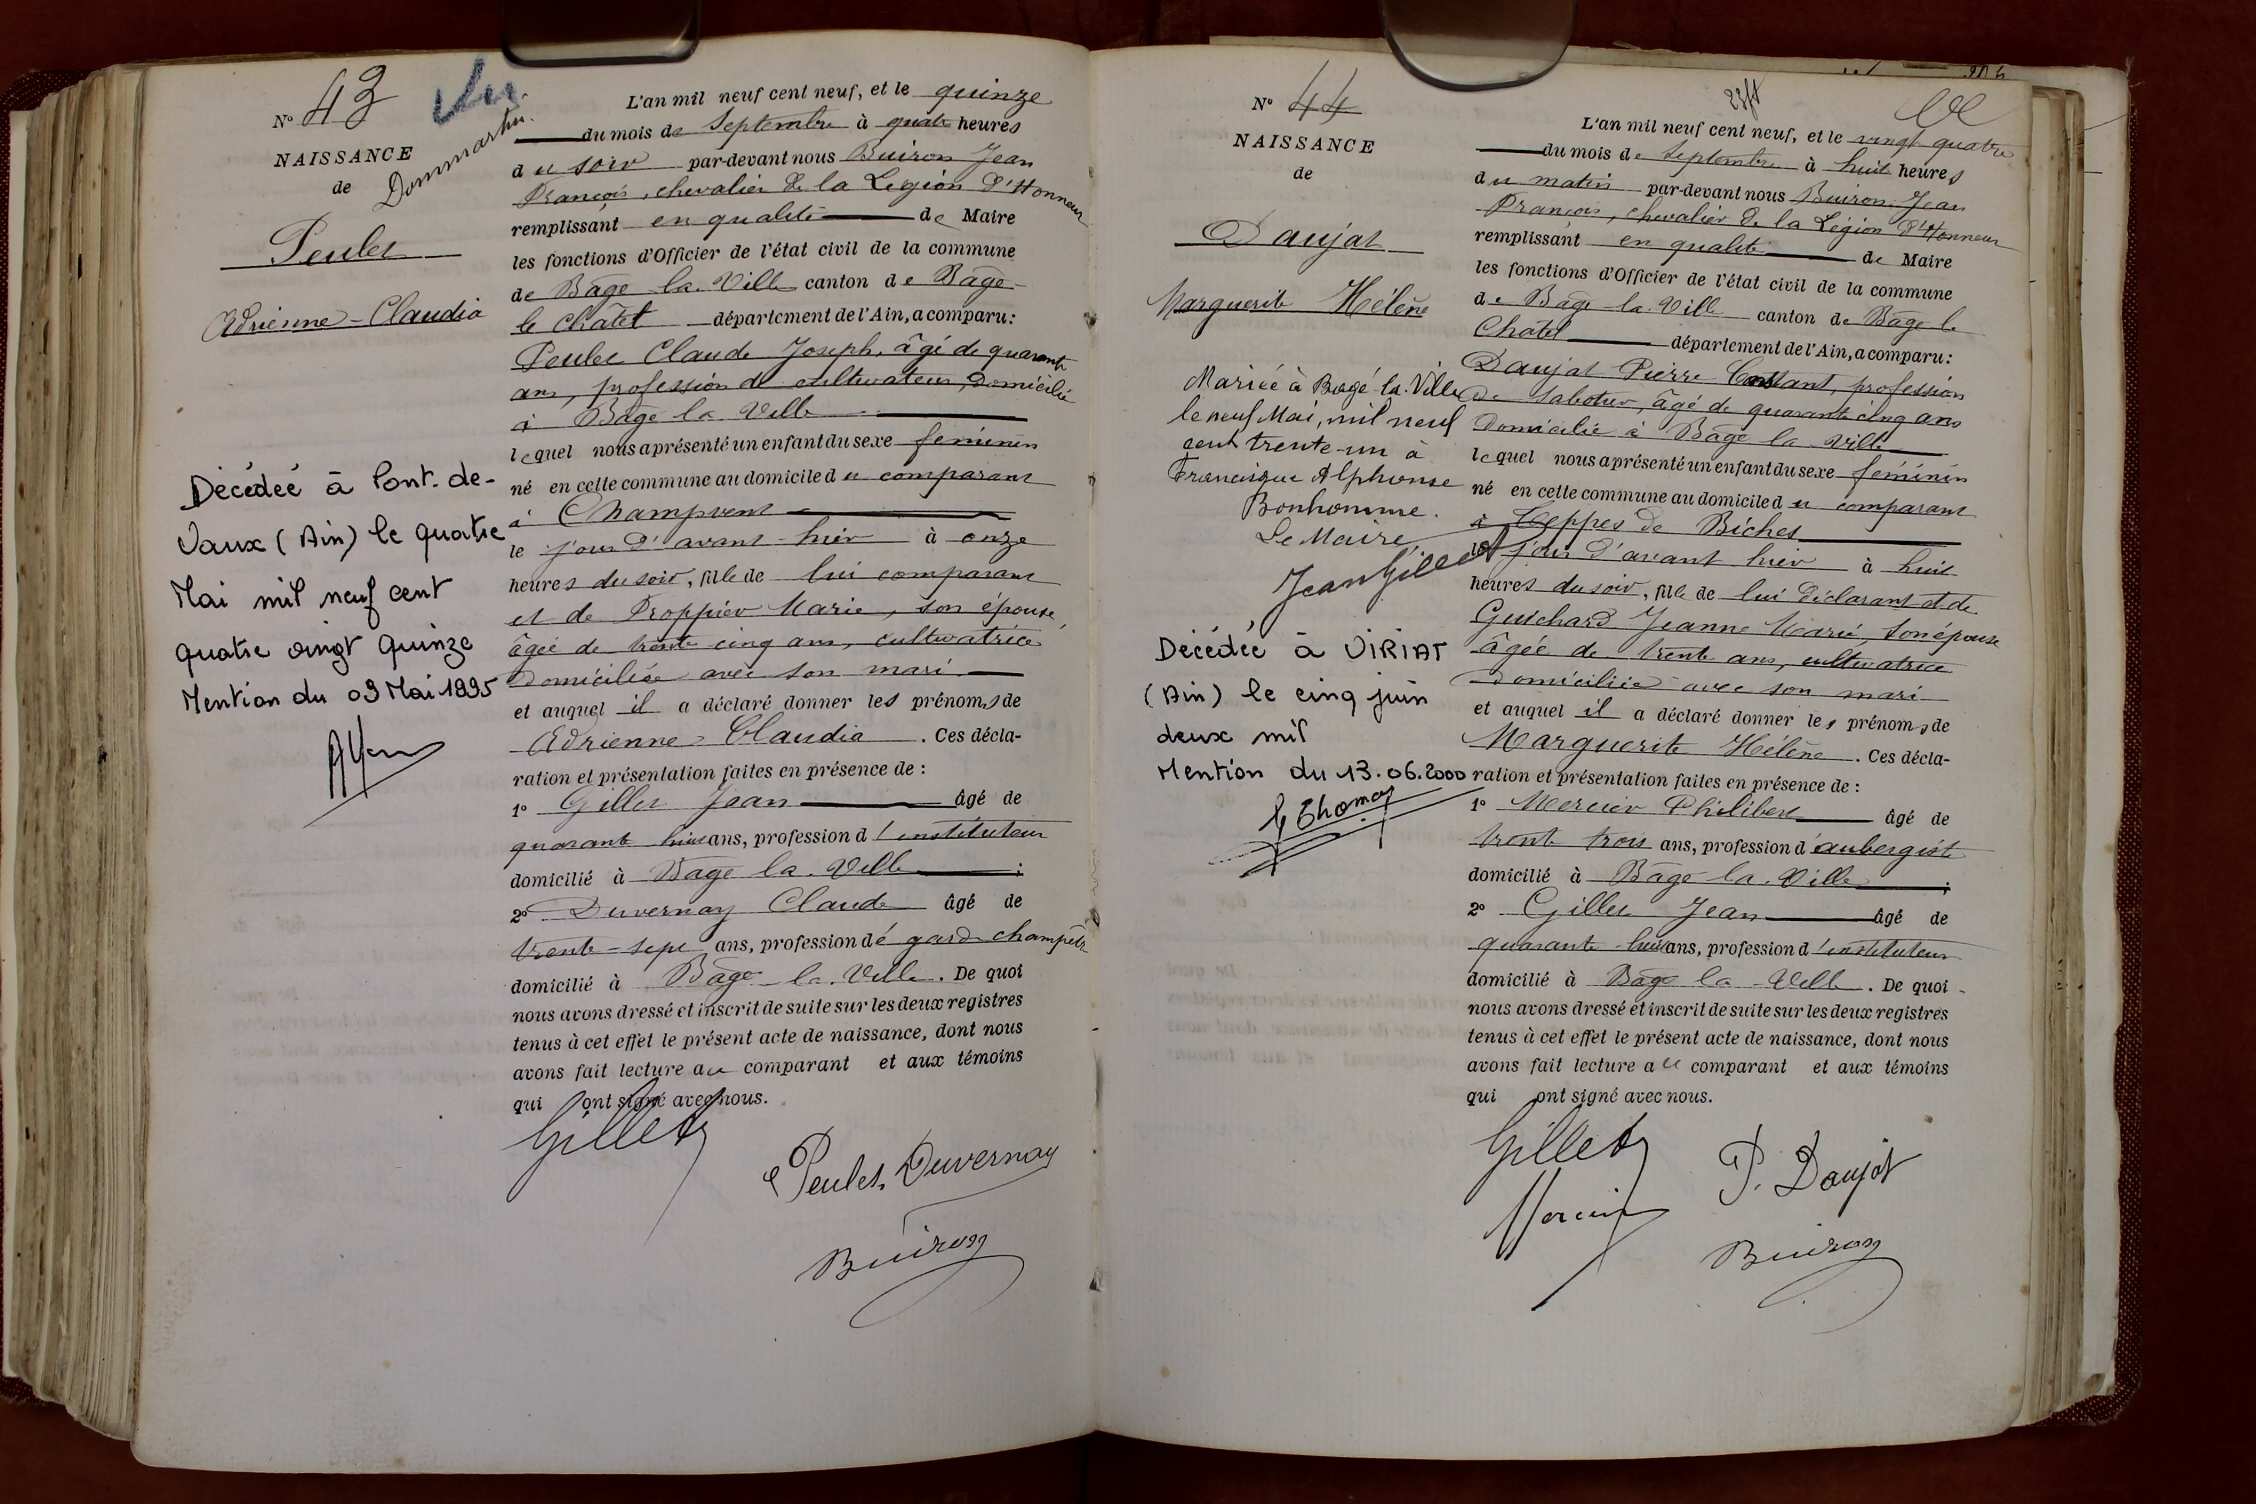 N° 43
Vu.
Dommartin.
NAISSANCE
de
Peulet
Adrienne-Claudia
Décédée à Pont-de-
Vaux (Ain) le quatre
Mai mil neuf cent
quatre vingt Quinze
Mention du 09 Mai 1995
L'an mil neuf cent neuf, et le quinze
du mois de Septembre à quatre heures
du soir par-devant nous Buiron Jean
François, chevalier de la Légion d'Honneur
remplissant en qualité de Maire
les fonctions d'Officier de l'état civil de la commune
de Bâgé la Ville canton de Bâgé
le Châtel département de l'Ain, a comparu :
Peulet Claude Joseph, âgé de quarante
ans, profession de cultivateur, domicilié
à Bâgé la Ville
lequel nous a présenté un enfant du sexe féminin
né en cette commune au domicile du comparant
à Champvent
le jour d'avant-hier à onze
heures du soir, fille de lui comparant
et de Proppier Marie, son épouse,
âgée de trente cinq ans, cultivatrice
domiciliée avec son mari
et auquel il a déclaré donner les prénoms de
Adrienne-Claudia. Ces décla-
ration et présentation faites en présence de :
1° Gillet Jean âgé de
quarante huit ans, profession d'instituteur
domicilié à Bâgé la Ville ;
2° Duvernay Claude âgé de
trente-sept ans, profession de garde champêtre
domicilié à Bâgé la Ville. De quoi
nous avons dressé et inscrit de suite sur les deux registres
tenus à cet effet le présent acte de naissance, dont nous
avons fait lecture au comparant et aux témoins
qui ont signé avec nous.
Gillet
Peulet Duvernay
Buiron
N° 44
NAISSANCE
de
Daujat
Marguerite Hélène
Mariée à Bagé-la-Ville
le neuf Mai, mil neuf
cent trente-un à
Francisque Alphonse
Bonhomme.
Le Maire
Jean Gillet
Décédée à VIRIAT
(Ain) le cinq juin
deux mil
Mention du 13.06.2000
L'an mil neuf cent neuf, et le vingt quatre
du mois de Septembre à huit heures
du matin par-devant nous Buiron Jean
François, chevalier de la Légion d'Honneur
remplissant en qualité de Maire
les fonctions d'Officier de l'état civil de la commune
de Bâgé la Ville canton de Bâgé le
Châtel département de l'Ain, a comparu :
Daujat Pierre Constant, profession
de sabotier, âgé de quarante cinq ans
domicilié à Bâgé la Ville
lequel nous a présenté un enfant du sexe féminin
né en cette commune au domicile du comparant
à Teppes de Biches
le jour d'avant hier à huit
heures du soir, fille de lui déclarant et de
Guichard Jeanne Marie, son épouse
âgée de trente ans, cultivatrice
domiciliée avec son mari
et auquel il a déclaré donner les prénoms de
Marguerite Hélène. Ces décla-
ration et présentation faites en présence de :
1° Mercier Philibert âgé de
trente trois ans, profession d'aubergiste
domicilié à Bâgé la Ville ;
2° Gillet Jean âgé de
quarante huit ans, profession d'instituteur
domicilié à Bâgé la Ville. De quoi
nous avons dressé et inscrit de suite sur les deux registres
tenus à cet effet le présent acte de naissance, dont nous
avons fait lecture au comparant et aux témoins
qui ont signé avec nous.
Gillet
P. Daujat
Mercier
Buiron